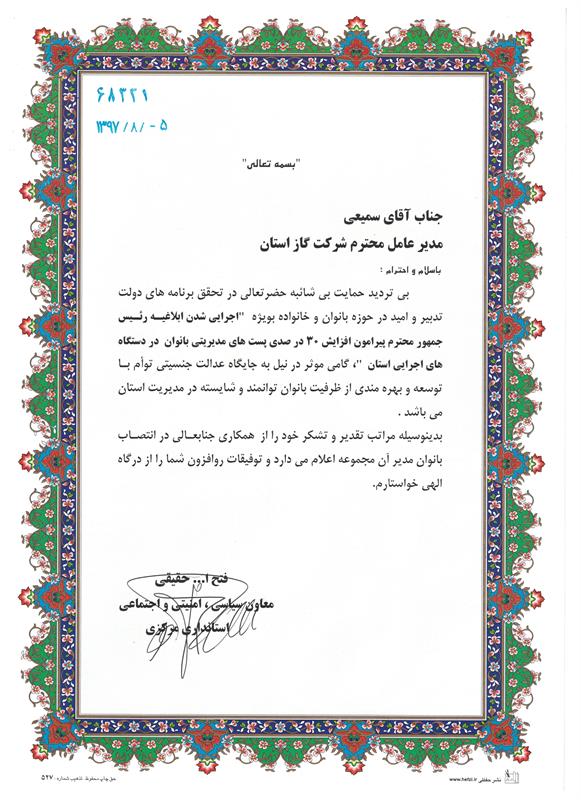 ۶۸۳۲۱
۱۳۹۷/۸/-۵
"بسمه تعالی"
جناب آقای سمیعی
مدیر عامل محترم شرکت گاز استان
باسلام و احترام ؛
بی تردید حمایت بی شائبه حضرتعالی در تحقق برنامه های دولت
تدبیر و امید در حوزه بانوان و خانواده بویژه "اجرایی شدن ابلاغیه رئیس
جمهور محترم پیرامون افزایش ۳۰ در صدی پست های مدیریتی بانوان در دستگاه
های اجرایی استان "، گامی موثر در نیل به جایگاه عدالت جنسیتی توأم با
توسعه و بهره مندی از ظرفیت بانوان توانمند و شایسته در مدیریت استان
می باشد .
بدینوسیله مراتب تقدیر و تشکر خود را از همکاری جنابعالی در انتصاب
بانوان مدیر آن مجموعه اعلام می دارد و توفیقات روافزون شما را از درگاه
الهی خواستارم.
فتح ا... حقیقی
معاون سیاسی ، امنیتی و اجتماعی
استانداری مرکزی
نشر حفظی www.hefzi.ir
حق چاپ محفوظ تذهیب شماره : ۵۲۷